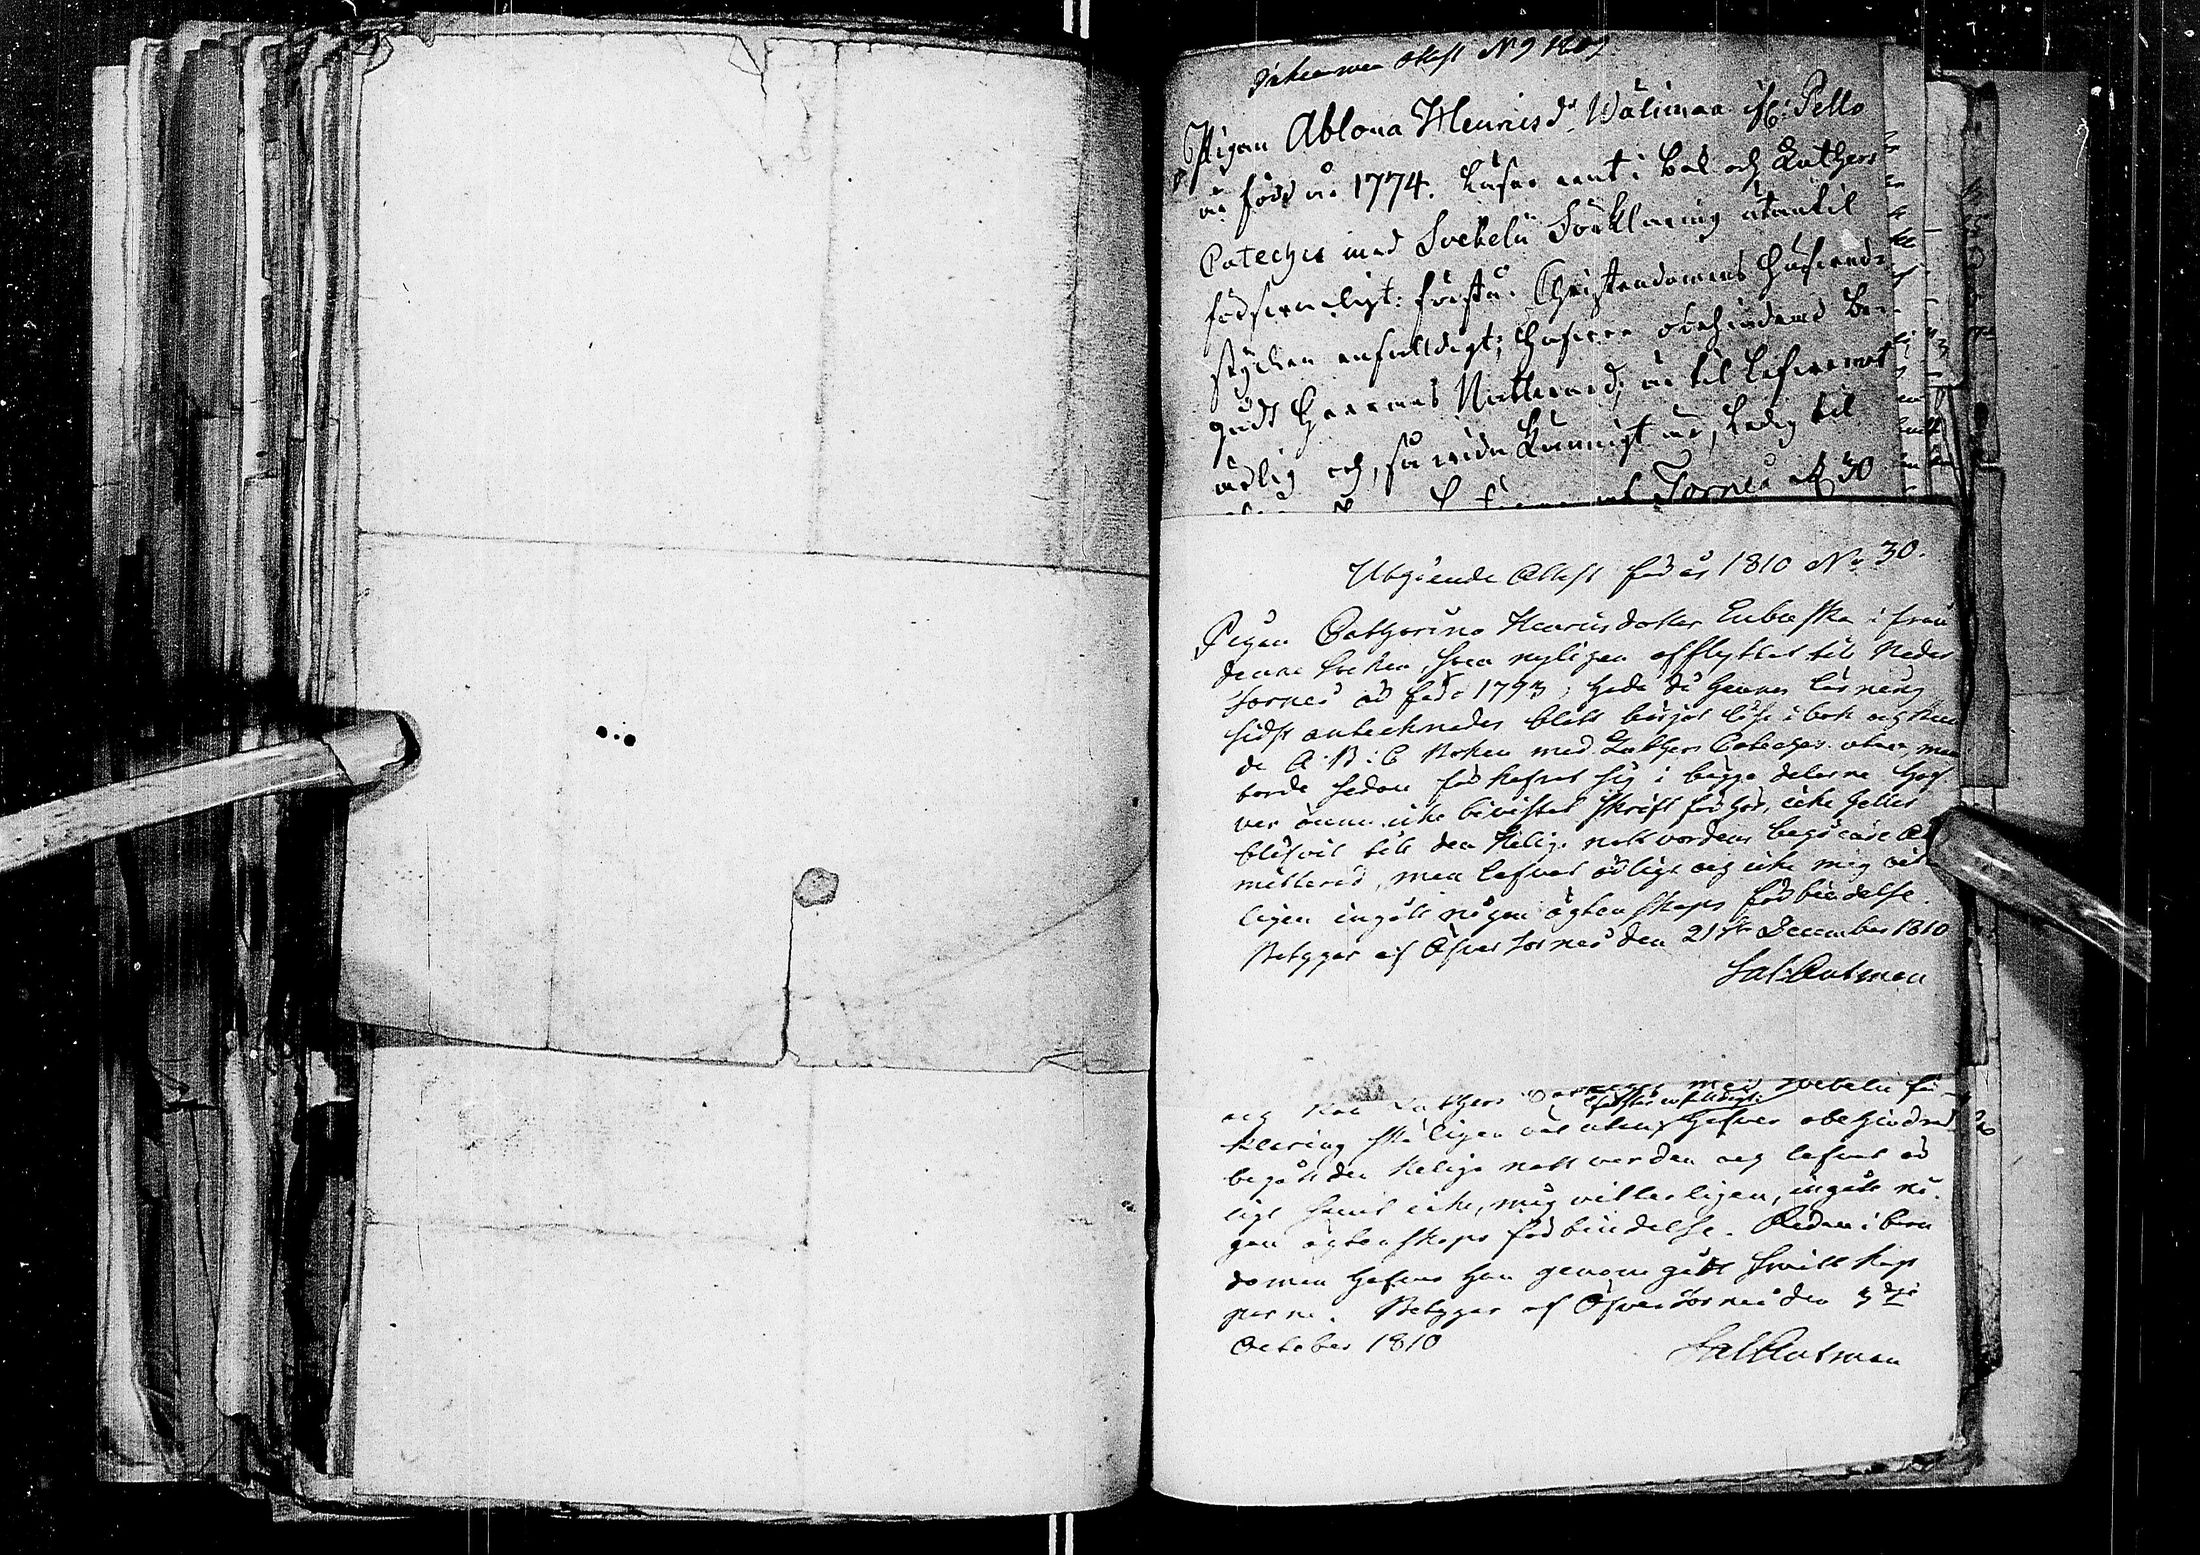 Inkommen Attest N 9 1809
Pigan Ablona Henricsdr Wälimaa ifr: Pello
är född år 1774. Läser rent i Bok och Lutheri
Cateches med Svebelii Förklaring utantil
försvarligt: förstår Christendomens hufvud-
stycken enfalldigt; hafver obehindrad be-
gådt Herrans Nattvard; är til lefvernet
ärlig och, så vida kunnigt är, ledig til
Torneå d 30
Utgående Attest för år 1810 No 30.
Pigan Catharina Henrics dotter Lubsska ifrån
denna Socken, som nyligen afflyttat till Neder
Torneå är född 1793, hade då hennes läsning
sidst antecknades blott börjat läsa i bok och kun
de A.B.C Boken med Luthers Cateches utan men
torde sedan förkofrat sig i begge delarne. Haf
ver ännu icke bevistat Skriftförhör, icke heller
blifvit till den Heliga nattvardens begående Ad
mitterad, men lefvat ärligt och icke mig vet
ligen ingått någon ägtenskaps förbindelse.
Betygar af Öfver Torneå den 21ste December 1810
Sal: Antman
och kan Luthers Cateches med Svebelii för
förstår enfaldigt
klaring skäligen väl utan, Hafver obehindrad
begått den Heliga nattvarden och lefvat är
ligt samt icke, mig vitterligen, ingått nå-
gon ägtenskaps förbindelse. Redan i barn
domen hafver han genomgått Smittkop
porna. Betygar af Öfver Torneå den 3dje
October 1810
Sal Antman